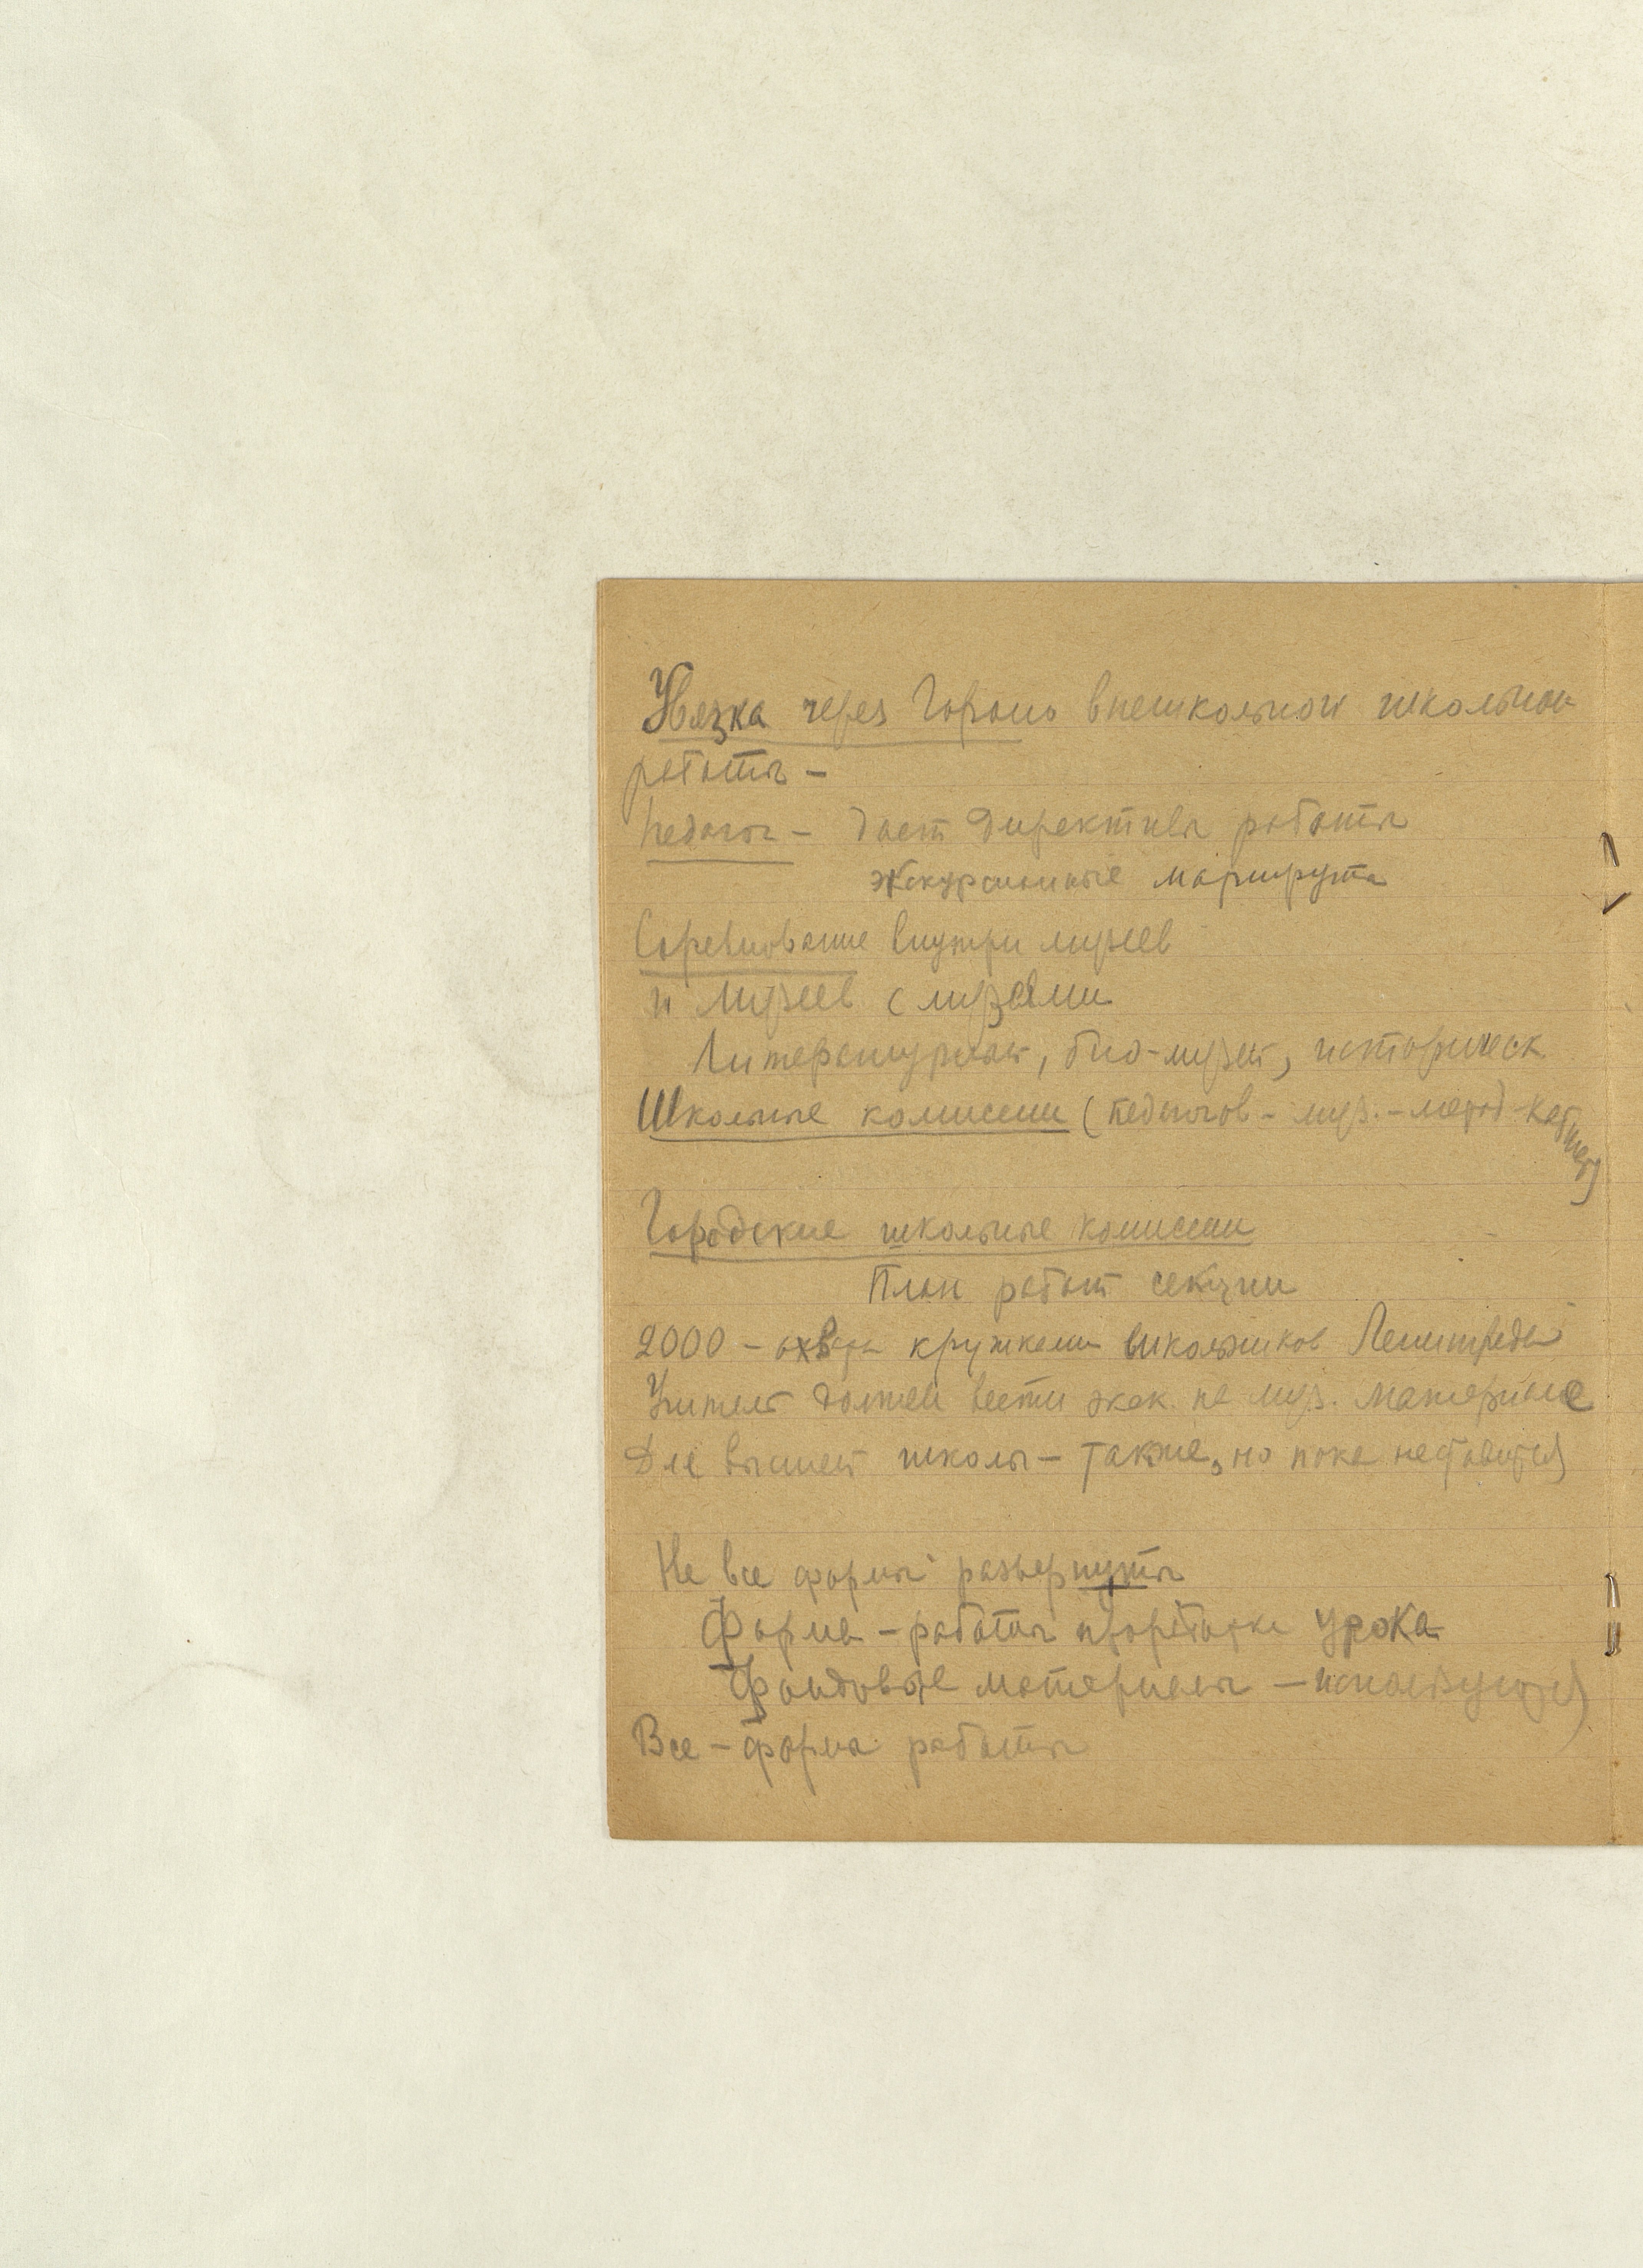 Увязка через Гороно внешкольной школьной
работы –
Педагог – дает директивы работы
экскурсионные маршруты
Соревнование внутри музеев
и музеев с музеями
Литературный, био-музей, историческ.
Школьные комиссии (педагогов – муз. – метод кабинет)
Городские школьные комиссии
План работ секции
2000 – охвата кружками школьников Ленинграда
Учитель должен вести экск. на муз. материале
Для высшей школы – также, но пока не ставится
Не все формы развернуты
Форма – работы проработка урока
Фондовые материалы – используются
Все – форма работы